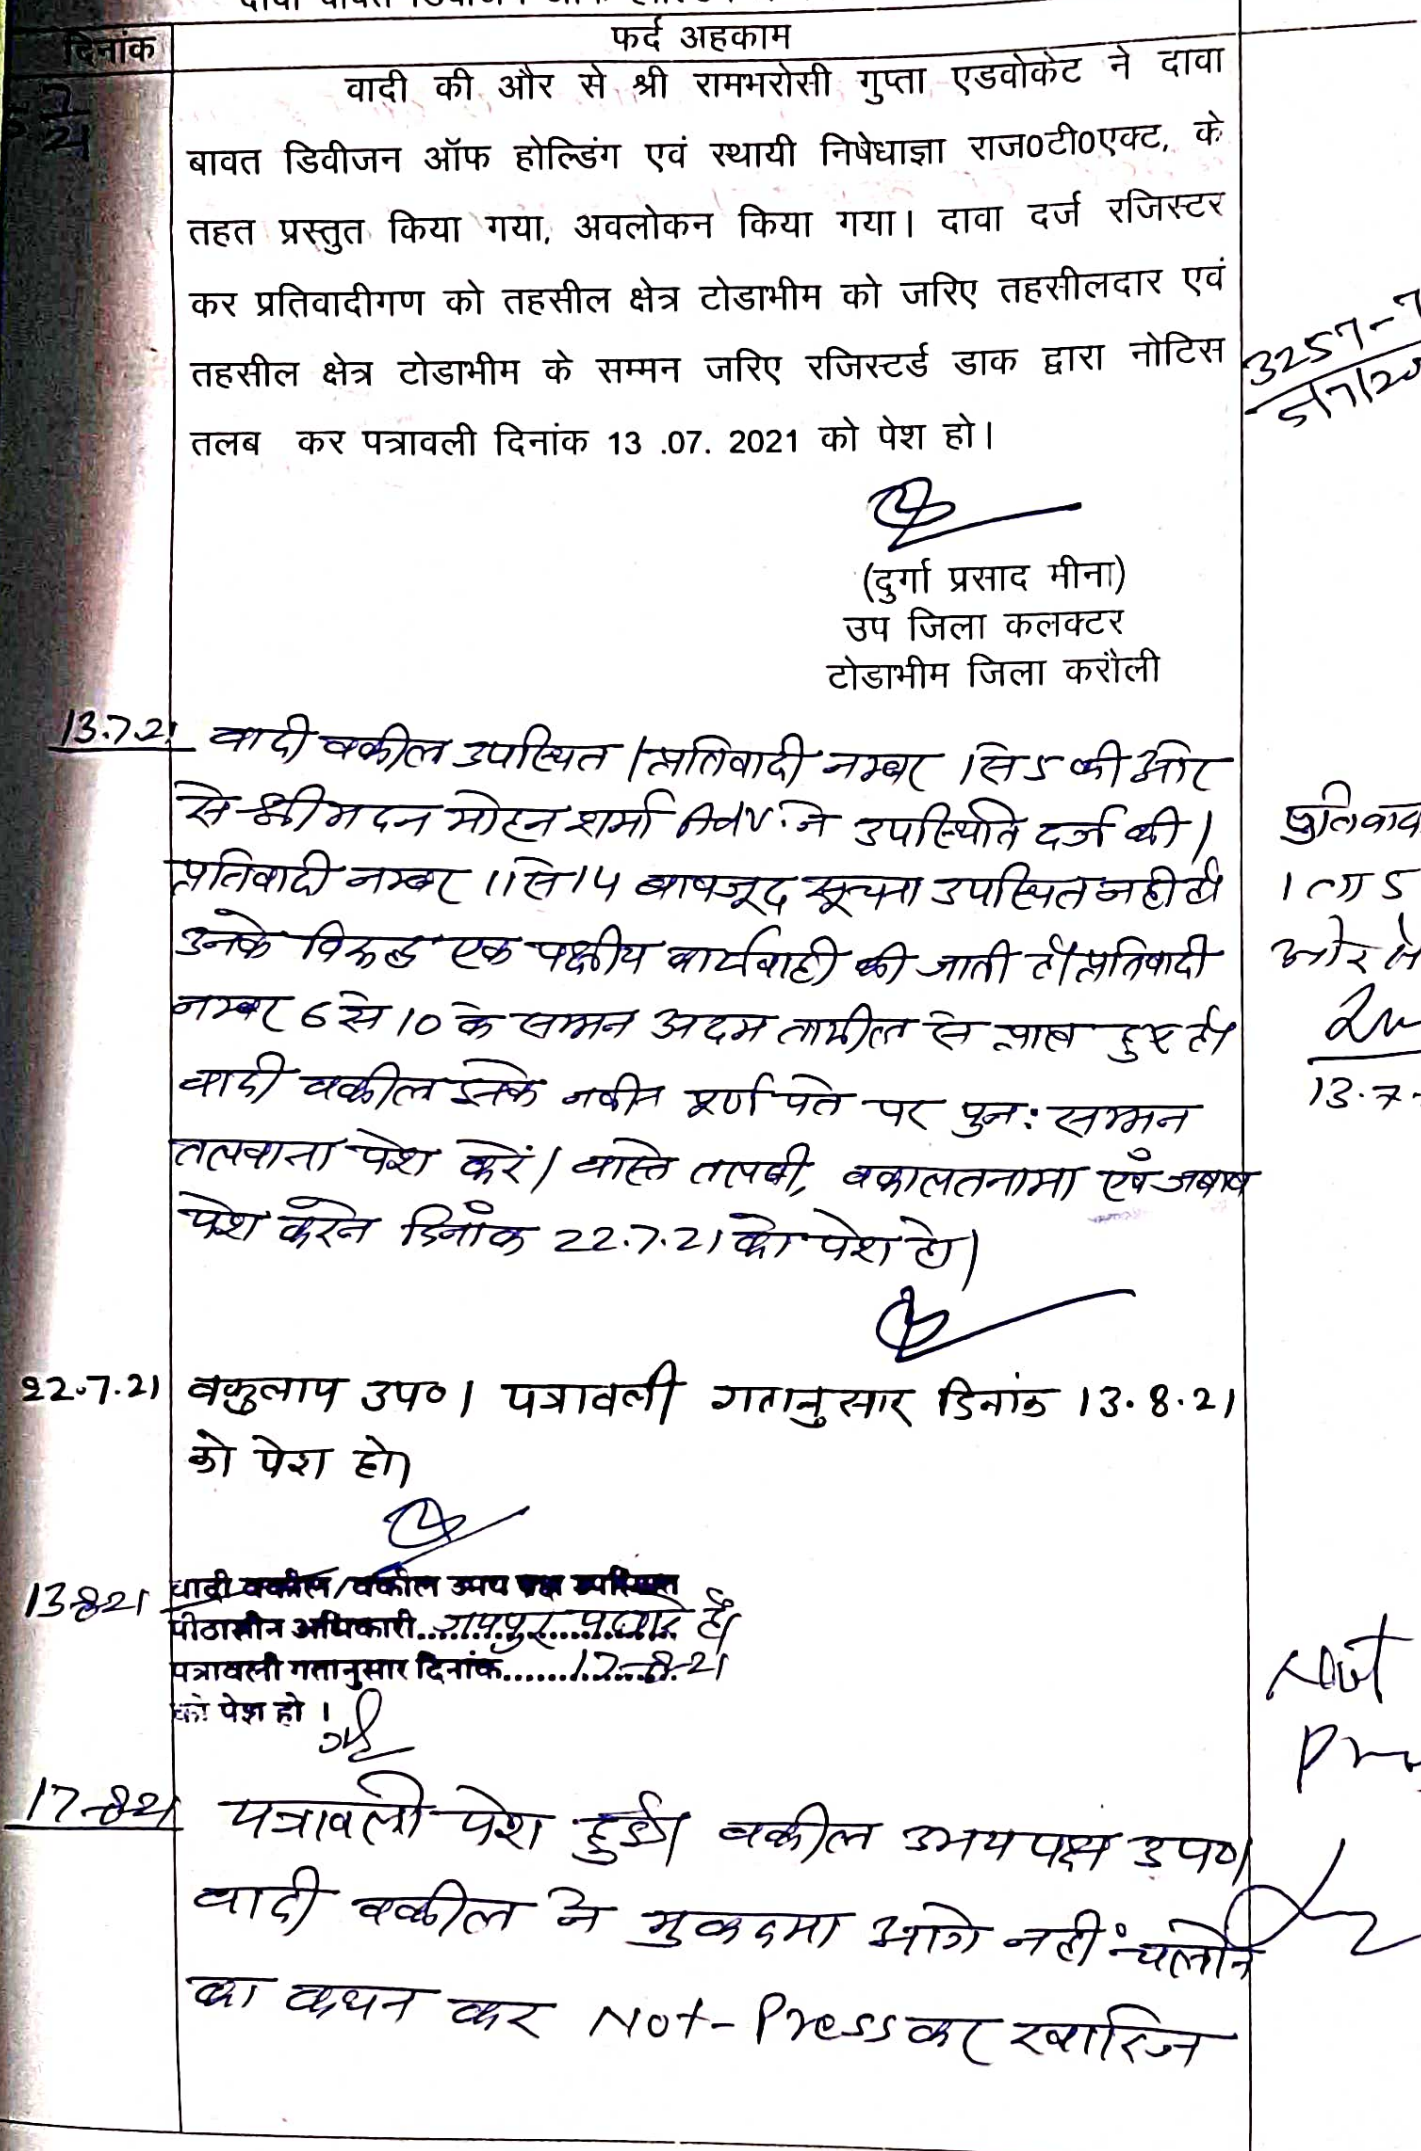 दिनांक
फर्द अहकाम
वादी की और से श्री रामभरोसी गुप्ता एडवोकेट ने दावा
बावत डिवीजन ऑफ होल्डिंग एवं स्थायी निषेधाज्ञा राज0टी0एक्ट, के
तहत प्रस्तुत किया गया, अवलोकन किया गया। दावा दर्ज रजिस्टर
कर प्रतिवादीगण को तहसील क्षेत्र टोडाभीम को जरिए तहसीलदार एवं
तहसील क्षेत्र टोडाभीम के सम्मन जरिए रजिस्टर्ड डाक द्वारा नोटिस
तलब कर पत्रावली दिनांक 13 .07. 2021 को पेश हो।
3257-7
5/7/20
(दुर्गा प्रसाद मीना)
उप जिला कलक्टर
टोडाभीम जिला करौली
13.7.21 वादी वकील उपस्थित। प्रतिवादी नम्बर 1 से 5 की ओर
से श्री मदन मोहन शर्मा Adv. ने उपस्थिति दर्ज की।
प्रतिवादी नम्बर 11 से 14 बावजूद सूचना उपस्थित नही है।
उनके विरूद्ध एक पक्षीय कार्यवाही की जाती है। प्रतिवादी
नम्बर 6 से 10 के सम्मन अदम तामील से प्राप्त हुए है।
वादी वकील इनके नवीन पूर्ण पते पर पुन: सम्मन
तलवाना पेश करें। वास्ते तलवी, वकालतनामा एवं जबाव
पेश करने दिनाँक 22.7.21 को पेश हो।
प्रतिवाद
1 ता 5
ओर से
13.7.
22.7.21 वकुलाय उप०। पत्रावली गतानुसार दिनांक 13.8.21
को पेश हो।
13-8-21 वादी वकील/वकील उभय पक्ष उपस्थित
पीठासीन अधिकारी जयपुर पधारे है।
पत्रावली गतानुसार दिनांक 17-8-21
को पेश हो ।
Not
Pr
17-8-21 पत्रावली पेश हुई। वकील उभयपक्ष उप०।
वादी वकील ने मुकदमा आगे नही चलाने
का कथन कर Not-Press कर खारिज